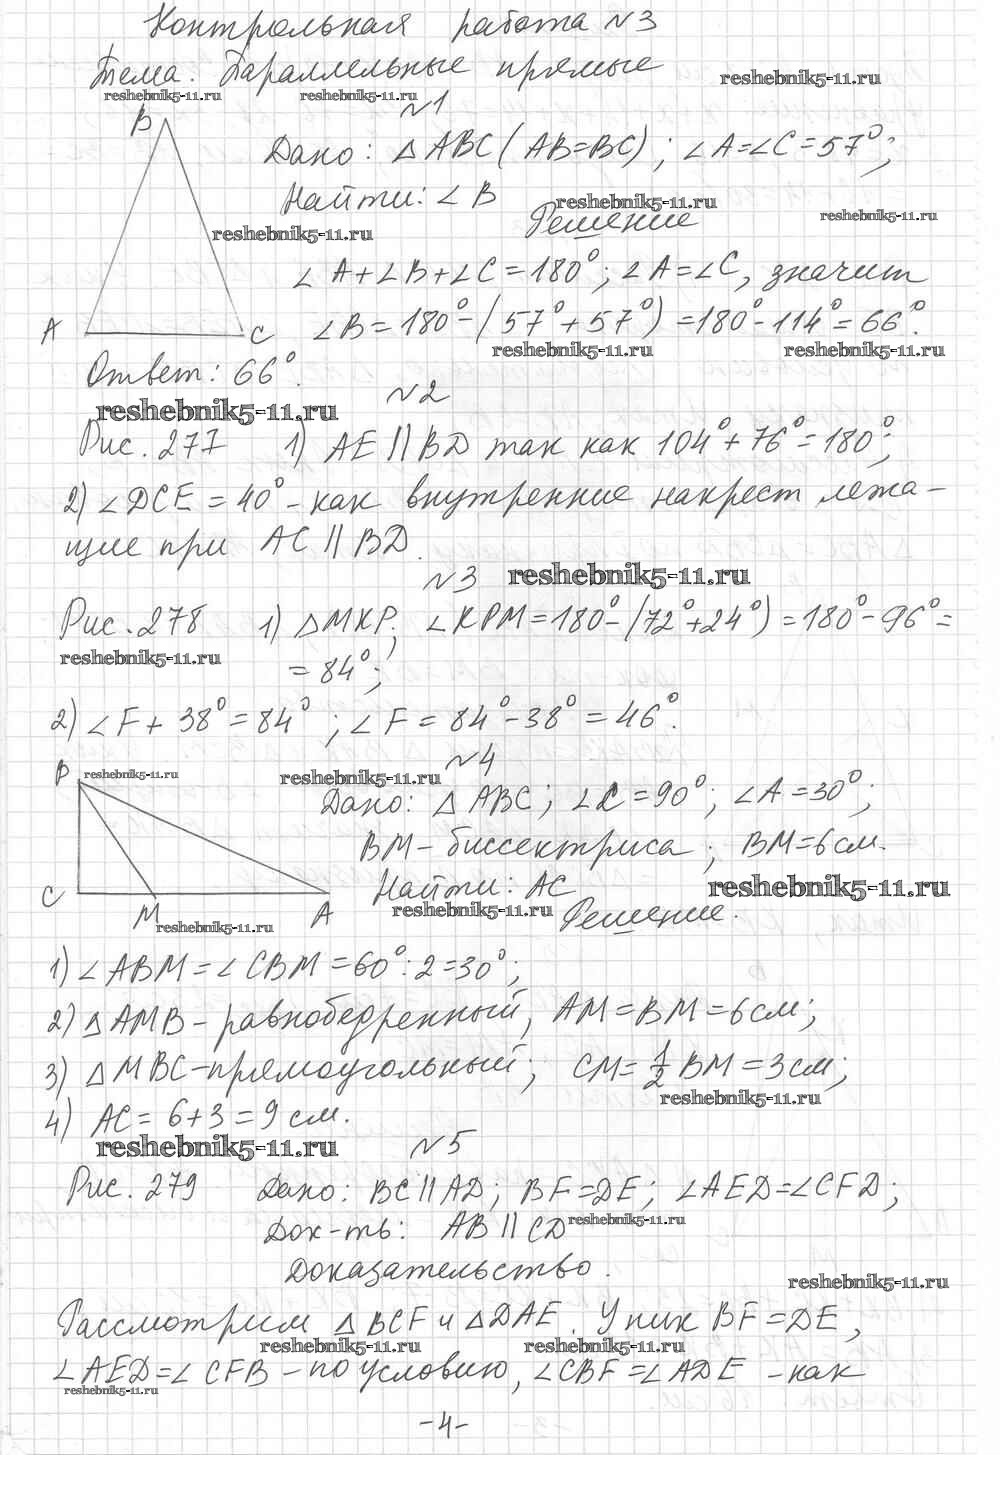 Контрольная работа №3
Тема. Параллельные прямые
reshebnik5-11.ru
reshebnik5-11.ru reshebnik5-11.ru
№1
B
Дано: △ABC (AB=BC); ∠A=∠C=57°;
Найти: ∠B
reshebnik5-11.ru
Решение
reshebnik5-11.ru
reshebnik5-11.ru
∠A+∠B+∠C=180°; ∠A=∠C, значит
∠B=180°-(57°+57°)=180°-114°=66°.
A C
reshebnik5-11.ru reshebnik5-11.ru
Ответ: 66°.
№2
reshebnik5-11.ru
Рис. 277 1) AE||BD так как 104°+76°=180°;
2) ∠DCE=40°-как внутренние накрест лежа-
щие при AC||BD.
№3
reshebnik5-11.ru
Рис. 278 1) △MKP; ∠KPM=180°-(72°+24°)=180°-96°=
reshebnik5-11.ru
=84°;
2) ∠F+38°=84°; ∠F=84°-38°=46°.
№4
B
reshebnik5-11.ru reshebnik5-11.ru
Дано: △ABC; ∠C=90°; ∠A=30°;
BM-биссектриса; BM=6см.
Найти: AC
reshebnik5-11.ru
C M A
reshebnik5-11.ru
reshebnik5-11.ru
Решение.
1) ∠ABM=∠CBM=60°:2=30°;
2) △AMB-равнобедренный, AM=BM=6см;
3) △MBC-прямоугольный; CM=1/2 BM=3см;
reshebnik5-11.ru
4) AC=6+3=9см.
reshebnik5-11.ru
№5
Рис. 279 Дано: BC||AD; BF=DE; ∠AED=∠CFD;
Док-ть: AB||CD
reshebnik5-11.ru
Доказательство.
reshebnik5-11.ru
Рассмотрим △BCF и △DAE. У них BF=DE,
reshebnik5-11.ru reshebnik5-11.ru
∠AED=∠CFB-по условию, ∠CBF=∠ADE -как
reshebnik5-11.ru
-4-